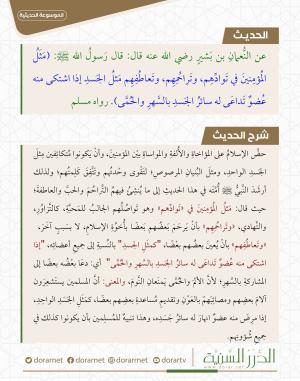 الموسوعة الحديثية
الحديث
عن النُّعمانِ بن بَشيرٍ رضي الله عنه قال: قال رَسولُ الله ﷺ: (مَثَلُ
المُؤمِنينَ في تَوادِّهم، وتَراحُمِهم، وتَعاطُفِهم مَثَلُ الجَسدِ إذا اشتكى منه
عُضوٌ تَداعَى له سائرُ الجَسدِ بالسَّهرِ والحُمَّى). رواه مسلم
شرح الحديث
حضَّ الإسلامُ على المؤاخاةِ والأُلفةِ والمواساةِ بيْن المؤمنينَ، وأنْ يَكونوا مُتكاتِفين مِثلَ
الجسَدِ الواحدِ، ومثلَ البُنيانِ المرصوصِ؛ لِتَقْوى وَحدتُهم وتتَّفِقَ كَلِمتُهم؛ ولذلك
أرشَدَ النبيُّ ﷺ أُمَّتَه في هذا الحديثِ إلى ما يُنشِئُ فيهم التَّراحُمَ والحبَّ والعاطفةَ؛
حيث قال: مَثَلُ المؤمنينَ في «تَوادِّهم» وهو تَواصُلُهم الجالبُ للمَحبَّةِ، كالتَّزاوُرِ،
والتَّهادي، «وتَراحُمِهم» بأنْ يَرحَمَ بعضُهم بعضًا بأُخوَّةِ الإسلامِ، لا بسَببٍ آخَرَ،
«وتَعاطُفِهم» بأنْ يُعينَ بعضُهم بعضًا، "كمثَلِ الجسدِ" بالنِّسبةِ إلى جميعِ أعضائِه، "إذا
اشتكى منه عُضوٌ تَداعَى له سائرُ الجسدِ بالسَّهرِ والحُمَّى" أي: دعَا بَعضُه بعضًا إلى
المشارَكةِ بالسَّهرِ؛ لأنَّ الألمَ والحُمَّى يَمنَعانِ النَّومَ، والمعنى: أنَّ المسلمينَ يَستشعِرون
آلامَ بعضِهم ومصائبَهم بالعَونِ وتَقديمِ مُساعدةِ بعضِهم بعضًا، كمَثلِ الجسَدِ الواحدِ،
إذا مرِضَ منه عضوٌ انهارَ له سائرُ جَسَدِه، وهذا تَنبيهٌ للمُسلِمين بأن يكونوا كذلك في
جَميعِ شُؤونِهم.
dorarnet dorarnet dorarnet dorartv
الدرر السنية
www.dorar.net